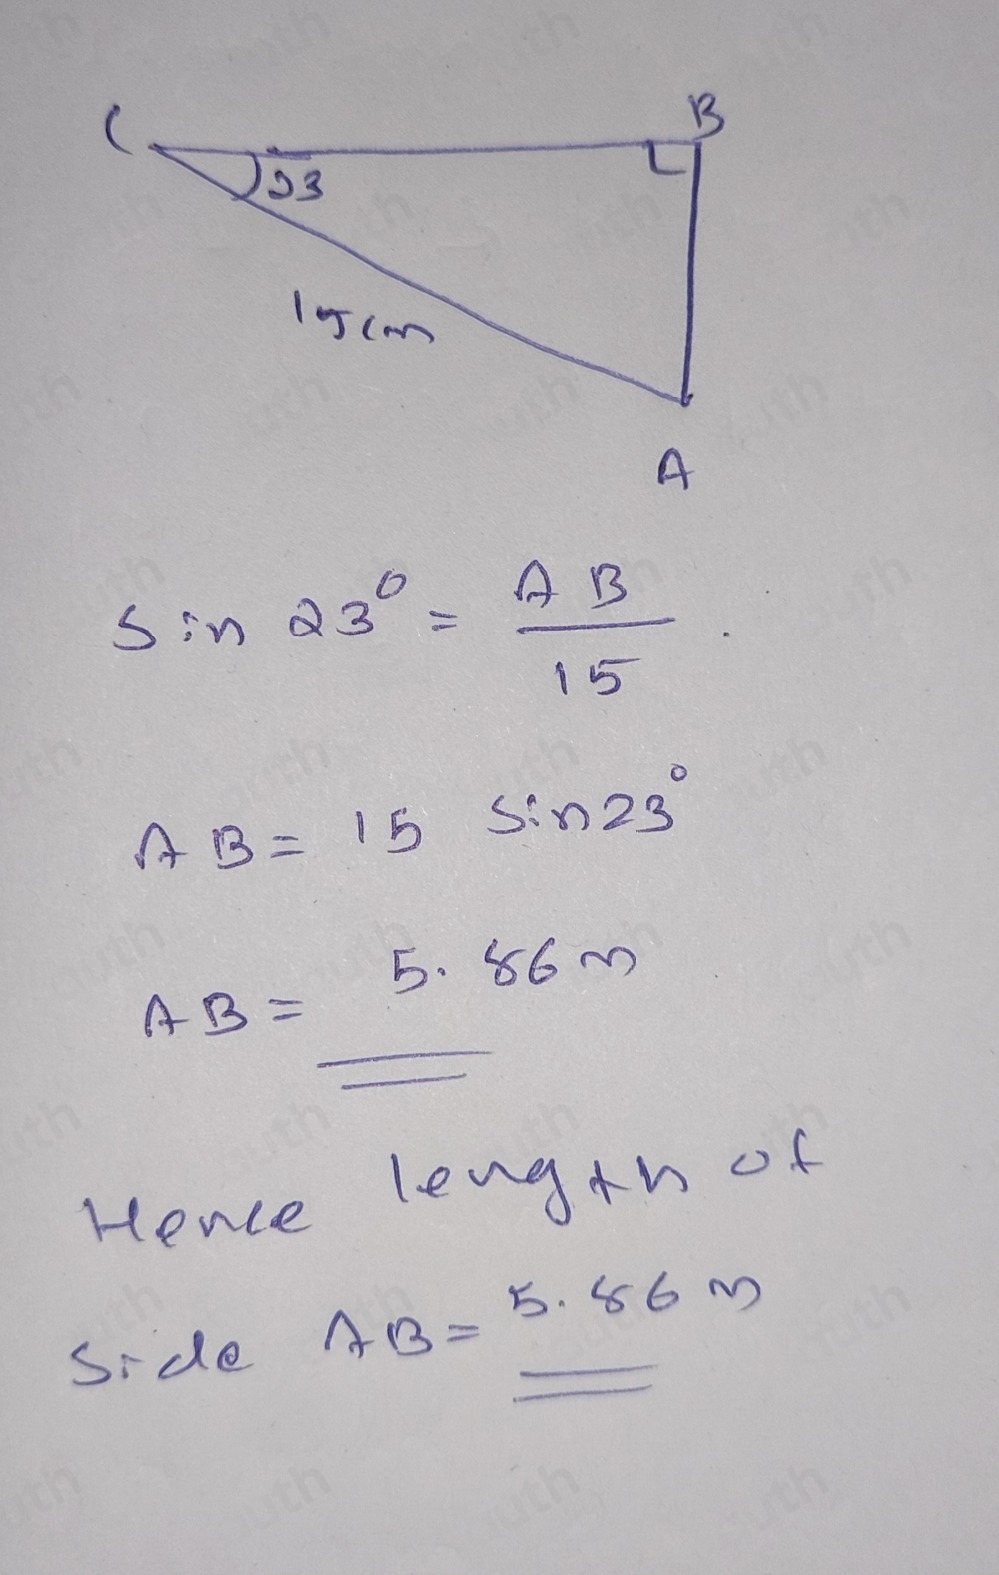 C
B
23
15cm
A
Sin 23° = AB/15
AB = 15 Sin23°
AB = 5.86m
Hence length of
Side AB = 5.86m